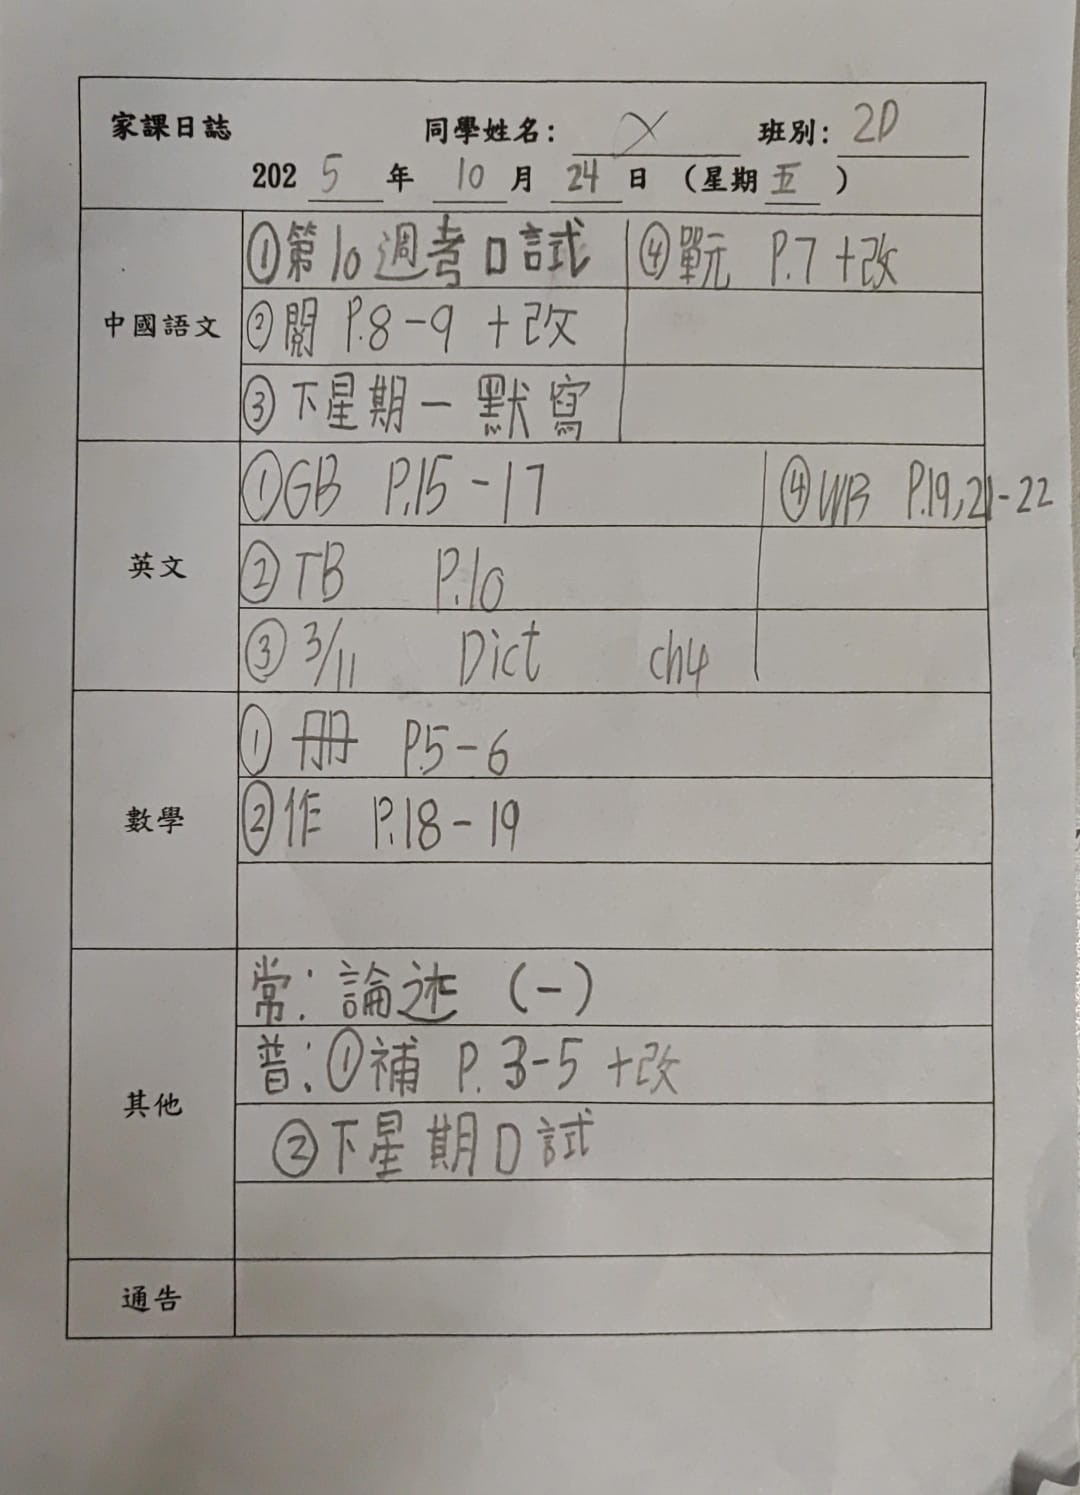 家課日誌 同學姓名: X 班別: 2D
2025年10月24日(星期五)
中國語文
①第10週考口試 ④單元 P.7+改
②閱 P.8-9 +改
③下星期一 默寫
英文
①GB P.15-17 ④WB P.19,21-22
②TB P.10
③3/11 Dict ch4
數學
①冊 P.5-6
②作 P.18-19
其他
常:論述(一)
普:①補 P.3-5+改
②下星期口試
通告